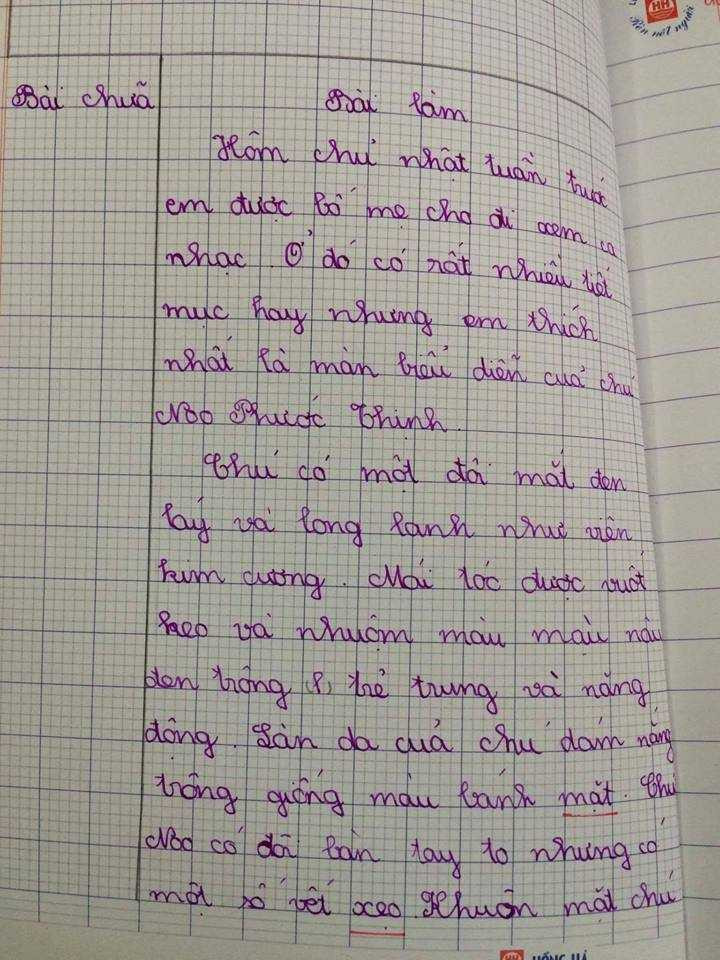 HH
Rèn nét người
Bài chữa
Bài làm
Hôm chủ nhật tuần trước
em được bố mẹ cho đi xem ca
nhạc. Ở đó có rất nhiều tiết
mục hay nhưng em thích
nhất là màn biểu diễn của chú
Noo Phước Thịnh.
Chú có một đôi mắt đen
láy và long lanh như viên
kim cương. Mái tóc được vuốt
keo và nhuộm màu màu nâu
đen trông trẻ trung và năng
động. Làn da của chú dám nắng
trông giống màu bánh mặt. Chú
Noo có đôi bàn tay to nhưng có
một số vết xẹo Khuôn mặt chú
HỒNG HÀ